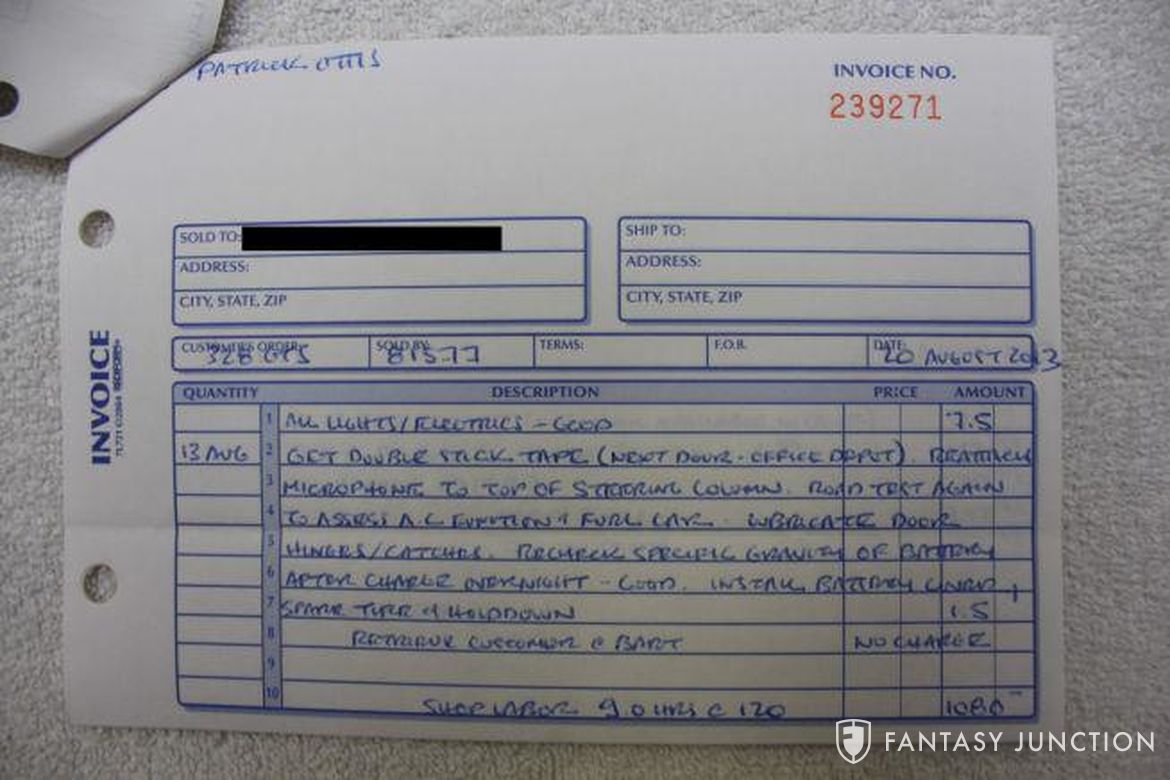 PATRICK OTTIS
INVOICE NO.
239271
SOLD TO:
ADDRESS:
CITY, STATE, ZIP
SHIP TO:
ADDRESS:
CITY, STATE, ZIP
INVOICE
CUSTOMER'S ORDER 328 GTS SOLD BY 81577 TERMS: F.O.B. DATE: 20 AUGUST 2013
QUANTITY DESCRIPTION PRICE AMOUNT
1 ALL LIGHTS/ELECTRICS - GOOD 7.5
13 AUG 2 GET DOUBLE STICK TAPE (NEXT DOOR - OFFICE DEPOT). REATTACH
3 MICROPHONE TO TOP OF STEERING COLUMN. ROAD TEST AGAIN
4 TO ASSESS A.C FUNCTION & FUEL CAR. LUBRICATE DOOR
5 HINGES/CATCHES. RECHECK SPECIFIC GRAVITY OF BATTERY
6 AFTER CHARGE OVERNIGHT - GOOD. INSTALL BATTERY COVER +
7 SPARE TIRE & HOLDDOWN 1.5
8 RETRIEVE CUSTOMER @ BART NO CHARGE
9
10 SHOP LABOR 9.0 HRS @ 120 1080
FANTASY JUNCTION